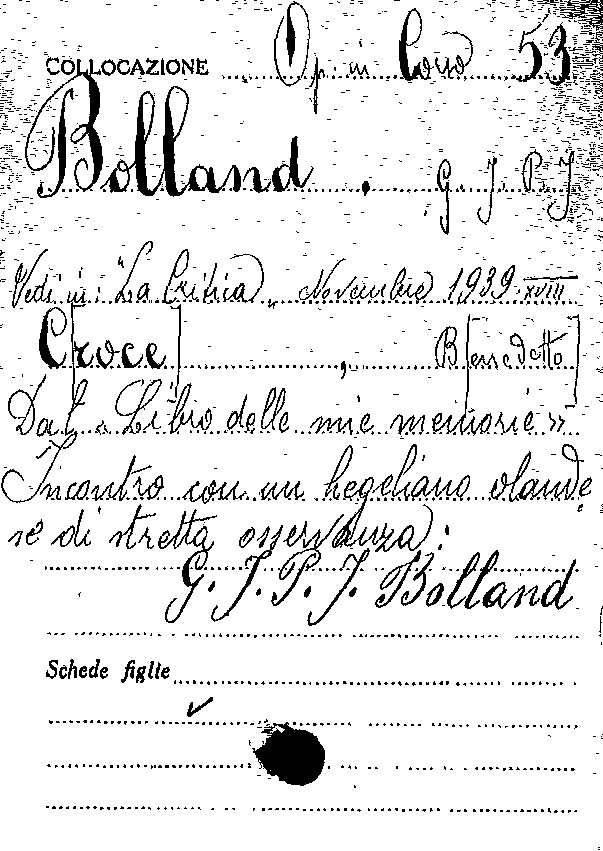 COLLOCAZIONE Op. in Corso 53
Bolland, G. J. P. J
Vedi in: "La Critica" Novembre 1939-XVIII
C[roce], B[enedetto]
Dal «Libro delle mie memorie»
Incontro con un hegeliano olande
se di stretta osservanza:
G. J. P. J. Bolland
Schede figlie